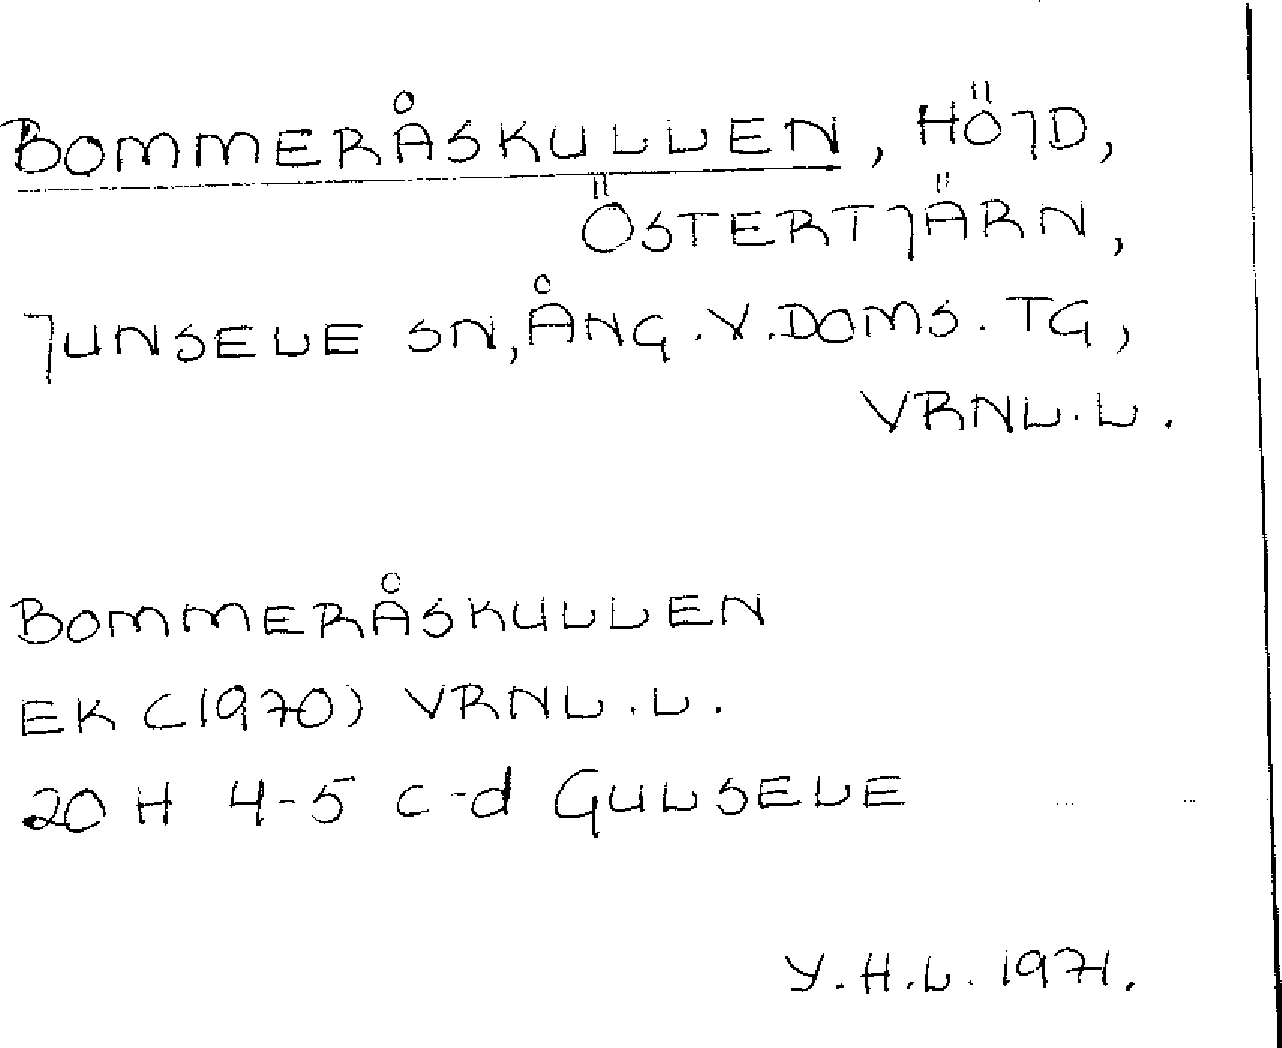 BOMMERÅSKULLEN, HÖJD,
ÖSTERTJÄRN,
JUNSELE SN, ÅNG. V. DOMS. TG,
VRNL. L.
BOMMERÅSKULLEN
EK (1970) VRNL. L.
20 H 4-5 c-d GULSELE
Y. H. L. 1971.